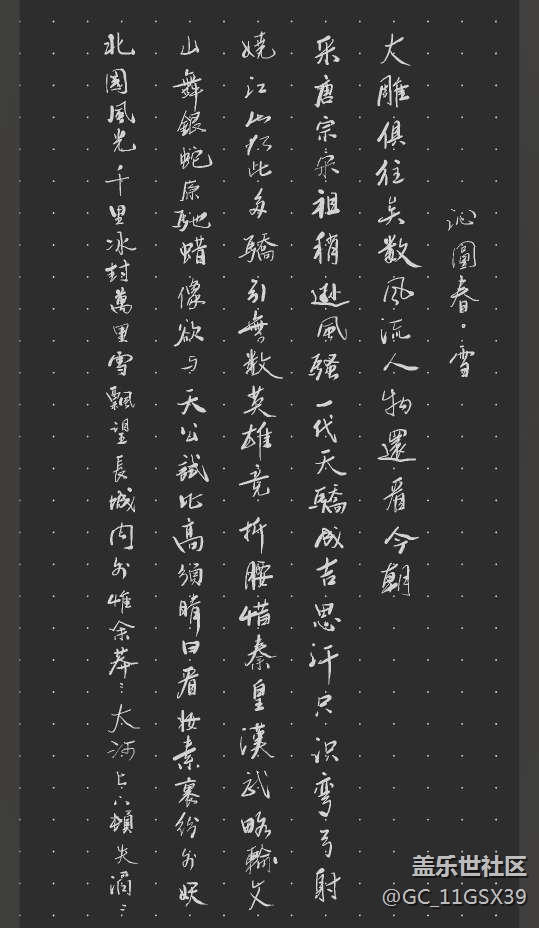 沁園春·雪
北國風光千里冰封萬里雪飄望長城内外惟余莽〻大河上下頓失滔〻
山舞銀蛇原馳蜡像欲与天公試比高須晴日看妆素裹紛外妖
嬈江山如此多驕引無数英雄竞折腰惜秦皇漢武略輸文
采唐宗宋祖稍遜風騷一代天驕成吉思汗只识彎弓射
大雕俱往矣数风流人物還看今朝
盖乐世社区
@GC_11GSX39